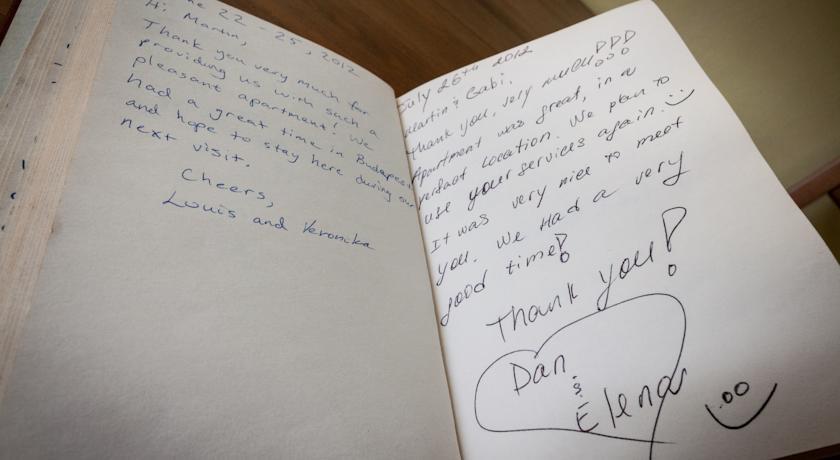 ne 22 - 25, 2012
Hi Martin,
Thank you very much for
providing us with such a
pleasant apartment! We
had a great time in Budapest
and hope to stay here during our
next visit.
Cheers,
Louis and Veronika
July 26th 2012
Martin & Gabi,
Thank you, very much!!!
Apartment was great, in a
perfact location. We plan to
use your services again.
It was very nice to meet
you. We Had a very
good time!
Thank you!
Dan
&
Elena